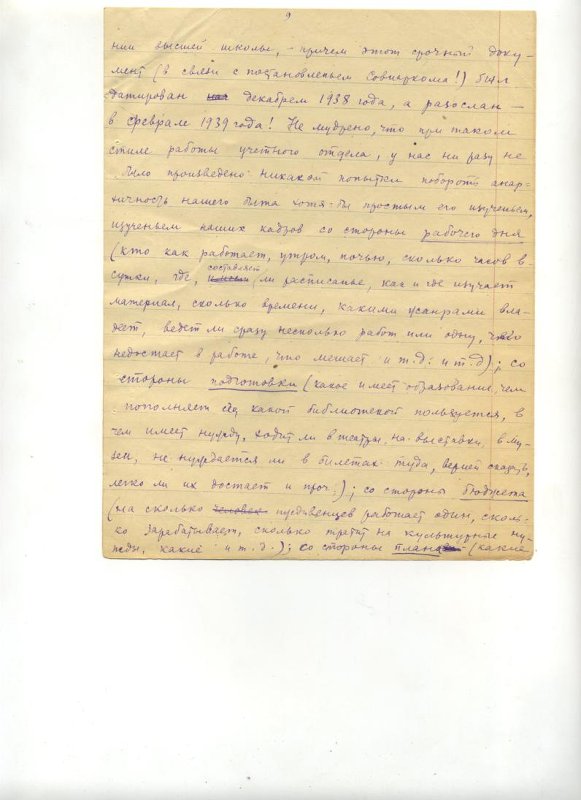 9
нии высшей школы, - причем этот срочный доку-
мент (в связи с постановленьем Совнаркома!) был
датирован декабрем 1938 года, а разослан —
в феврале 1939 года! Не мудрено, что при таком
стиле работы учетного отдела, у нас ни разу не
было произведено никакой попытки побороть анар-
хичность нашего быта хотя-бы простым его изученьем,
изученьем наших кадров со стороны рабочего дня
(кто как работает, утром, ночью, сколько часов в
сутки, где, составляет ли расписанье, как и где изучает
материал, сколько времени, какими жанрами вла-
деет, ведет ли сразу несколько работ или одну, чего
недостает в работе, что мешает и т.д. и т.д); со
стороны подготовки (какое имеет образование, чем
пополняет его, какой библиотекой пользуется, в
чем имеет нужду, ходит ли в театры, на выставки, в му-
зеи, не нуждается ли в билетах туда, верней сказать,
легко ли их достает и проч.); со стороны бюджета
(на сколько иждивенцев работает один, сколь-
ко зарабатывает, сколько тратит на культурные ну-
жды, какие и т.д.); со стороны плана (какие